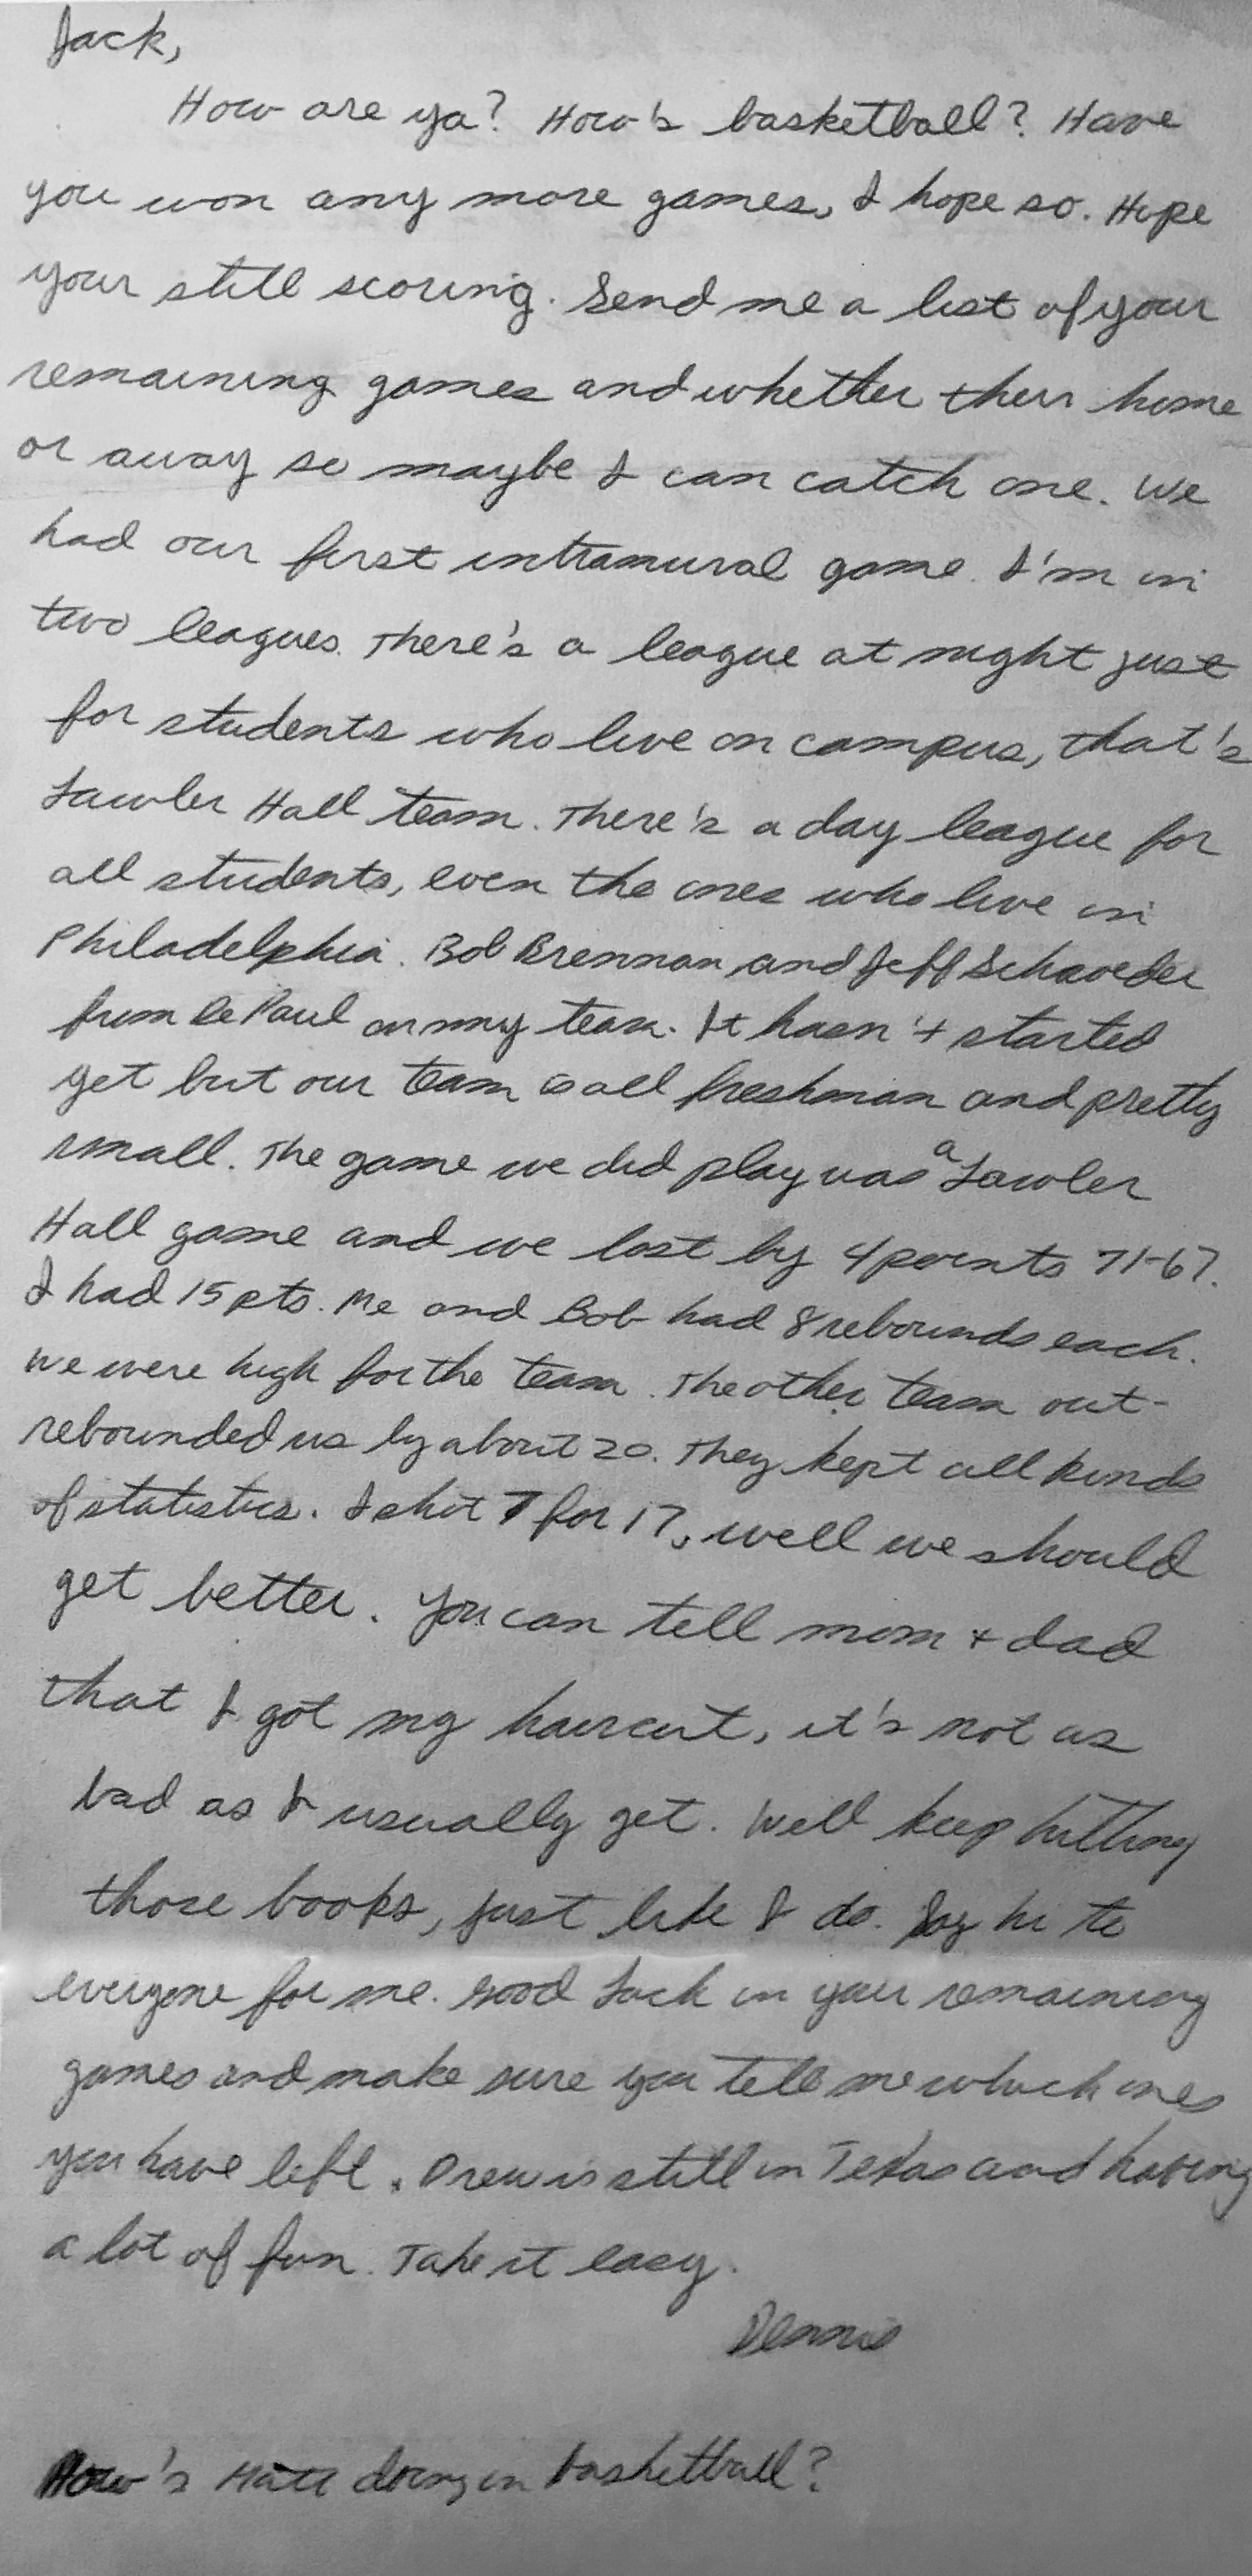 Jack,
How are ya? How's basketball? Have
you won any more games, I hope so. Hope
your still scoring. Send me a list of your
remaining games and whether their home
or away so maybe I can catch one. We
had our first intramural game. I'm in
two leagues. There's a league at night just
for students who live on campus, that's
Lawler Hall team. There's a day league for
all students, even the ones who live in
Philadelphia. Bob Brennan and Jeff Schroeder
from De Paul on my team. It hasn't started
yet but our team is all freshman and pretty
small. The game we did play was a Lawler
Hall game and we lost by 4 points 71-67.
I had 15 pts. Me and Bob had 8 rebounds each.
We were high for the team. The other team out-
rebounded us by about 20. They kept all kinds
of statistics. I shot 7 for 17, well we should
get better. You can tell mom + dad
that I got my haircut, it's not as
bad as I usually get. Well keep hitting
those books, just like I do. Say hi to
everyone for me. Good Luck in your remaining
games and make sure you tell me which ones
you have left. Drew is still in Texas and having
a lot of fun. Take it easy.
Dennis
How's Matt doing in basketball?